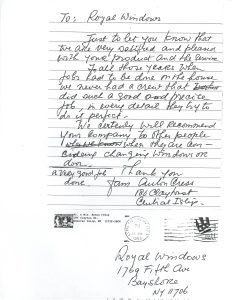 To: Royal Windows
Just to let you know that
we are very satisfied and pleased
with your product and the service
In all those years when
jobs had to be done on the house
we never had a crew that
did such a good and precise
job, in every detail they try to
do it perfect.
We certainly will recommend
your company to other people
when they are con-
sidering changing windows or
door.
A very good job Thank you
done.
Central Islip.
Royal Windows
1769 Fifth Ave
Bayshore
NY 11706